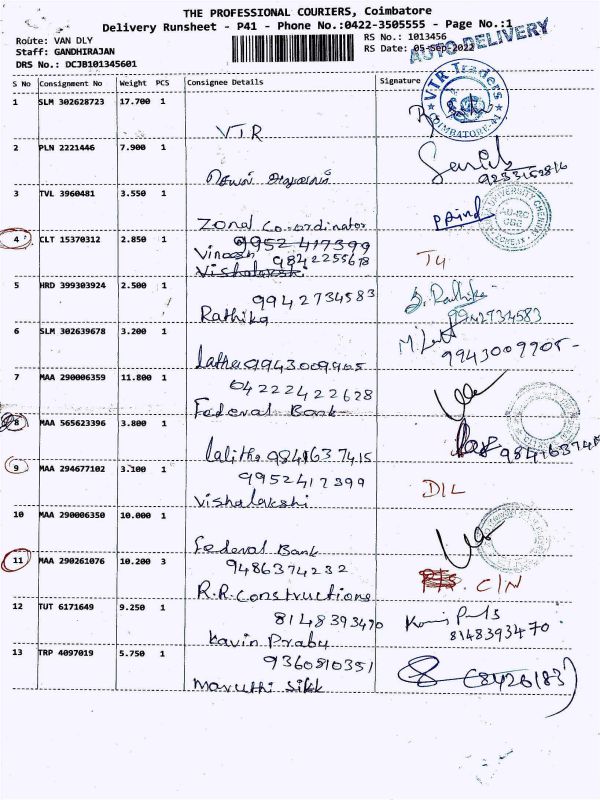 THE PROFESSIONAL COURIERS, Coimbatore
Delivery Runsheet - P41 - Phone No.:0422-3505555 - Page No.:1
Route: VAN DLY
RS No.: 1013456
Staff: GANDHIRAJAN
RS Date: 05-Sep-2022
AUTO DELIVERY
DRS No.: DCJB101345601
S No Consignment No Weight PCS Consignee Details Signature
V.T.R. Traders
COIMBATORE
1 SLM 302628723 17.700 1
VTR
2 PLN 2221446 7.900 1
3 TVL 3960481 3.550 1
Zonal Co-ordinator
4 CLT 15370312 2.850 1 9952 417399
Vinoth 9842255678 T4
Vishalakshi
5 HRD 399303924 2.500 1
9942734583
Rathika
S. Rathika
9942734583
6 SLM 302639678 3.200 1
Latha 9943009905
9943009905-
7 MAA 290006359 11.800 1 04222422628
Federal Bank
8 MAA 565623396 3.800 1
Lalitha 9841637415
9 MAA 294677102 3.100 1 9952417399
Vishalakshi
DIL
10 MAA 290006350 10.000 1
Federal Bank
11 MAA 290261076 10.200 3 9486374232
R.R.Constructions
CIN
12 TUT 6171649 9.250 1 8148393470
Kavin Prabu
8148393470
13 TRP 4097019 5.750 1 9360810351
Maruthi Silk
(8426183)